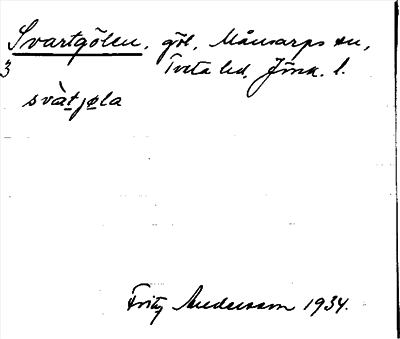 Svartgölen, göl, Månsarps sn,
3 Tveta hd, Jönk. l.
svàtjøla
Fritz Andersson 1934.